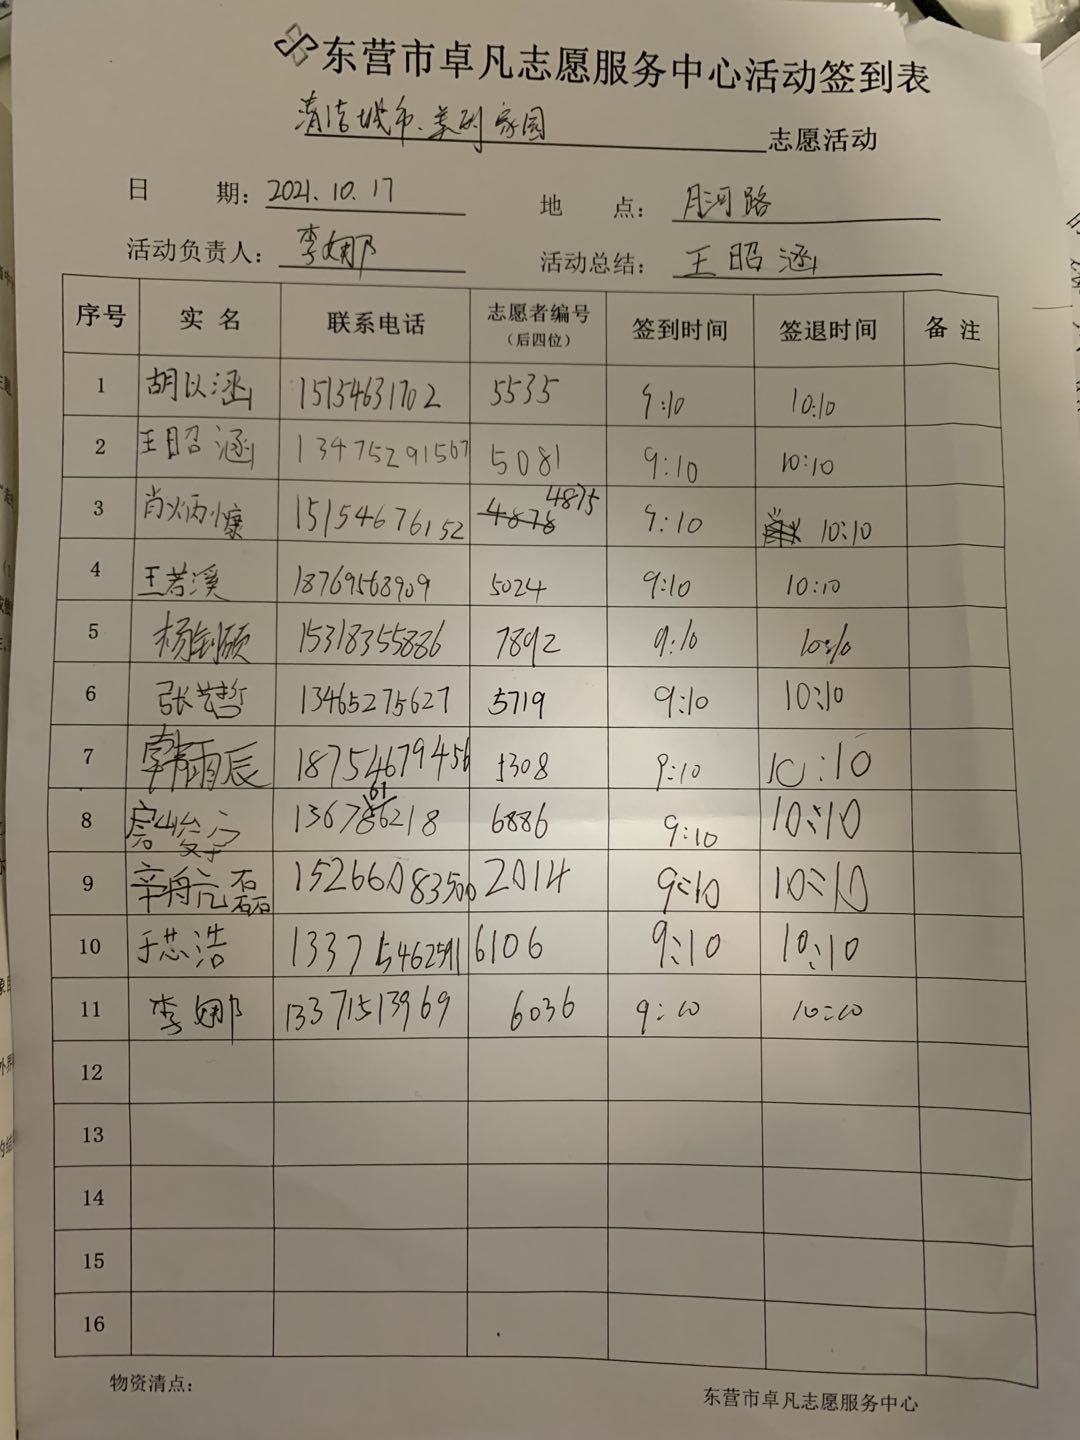 东营市卓凡志愿服务中心活动签到表
清洁城市、美丽家园 志愿活动
日 期: 2021.10.17 地 点: 月河路
活动负责人: 李娜 活动总结: 王昭涵
序号 实名 联系电话 志愿者编号(后四位) 签到时间 签退时间 备注
1 胡以涵 15154631702 5535 9:10 10:10
2 王昭涵 13475291567 5081 9:10 10:10
3 肖炳慷 15154676152 4875 9:10 10:10
4 王若溪 18769568909 5024 9:10 10:10
5 杨钊硕 15318355886 7892 9:10 10:10
6 张艺哲 13465275627 5719 9:10 10:10
7 韩雨辰 18754679456 5308 9:10 10:10
8 6886 9:10 10:10
9 辛舟亢磊 15266083500 2014 9:10 10:10
10 于芯浩 13375462591 6106 9:10 10:10
11 李娜 13371513969 6036 9:10 10:10
12
13
14
15
16
物资清点: 东营市卓凡志愿服务中心